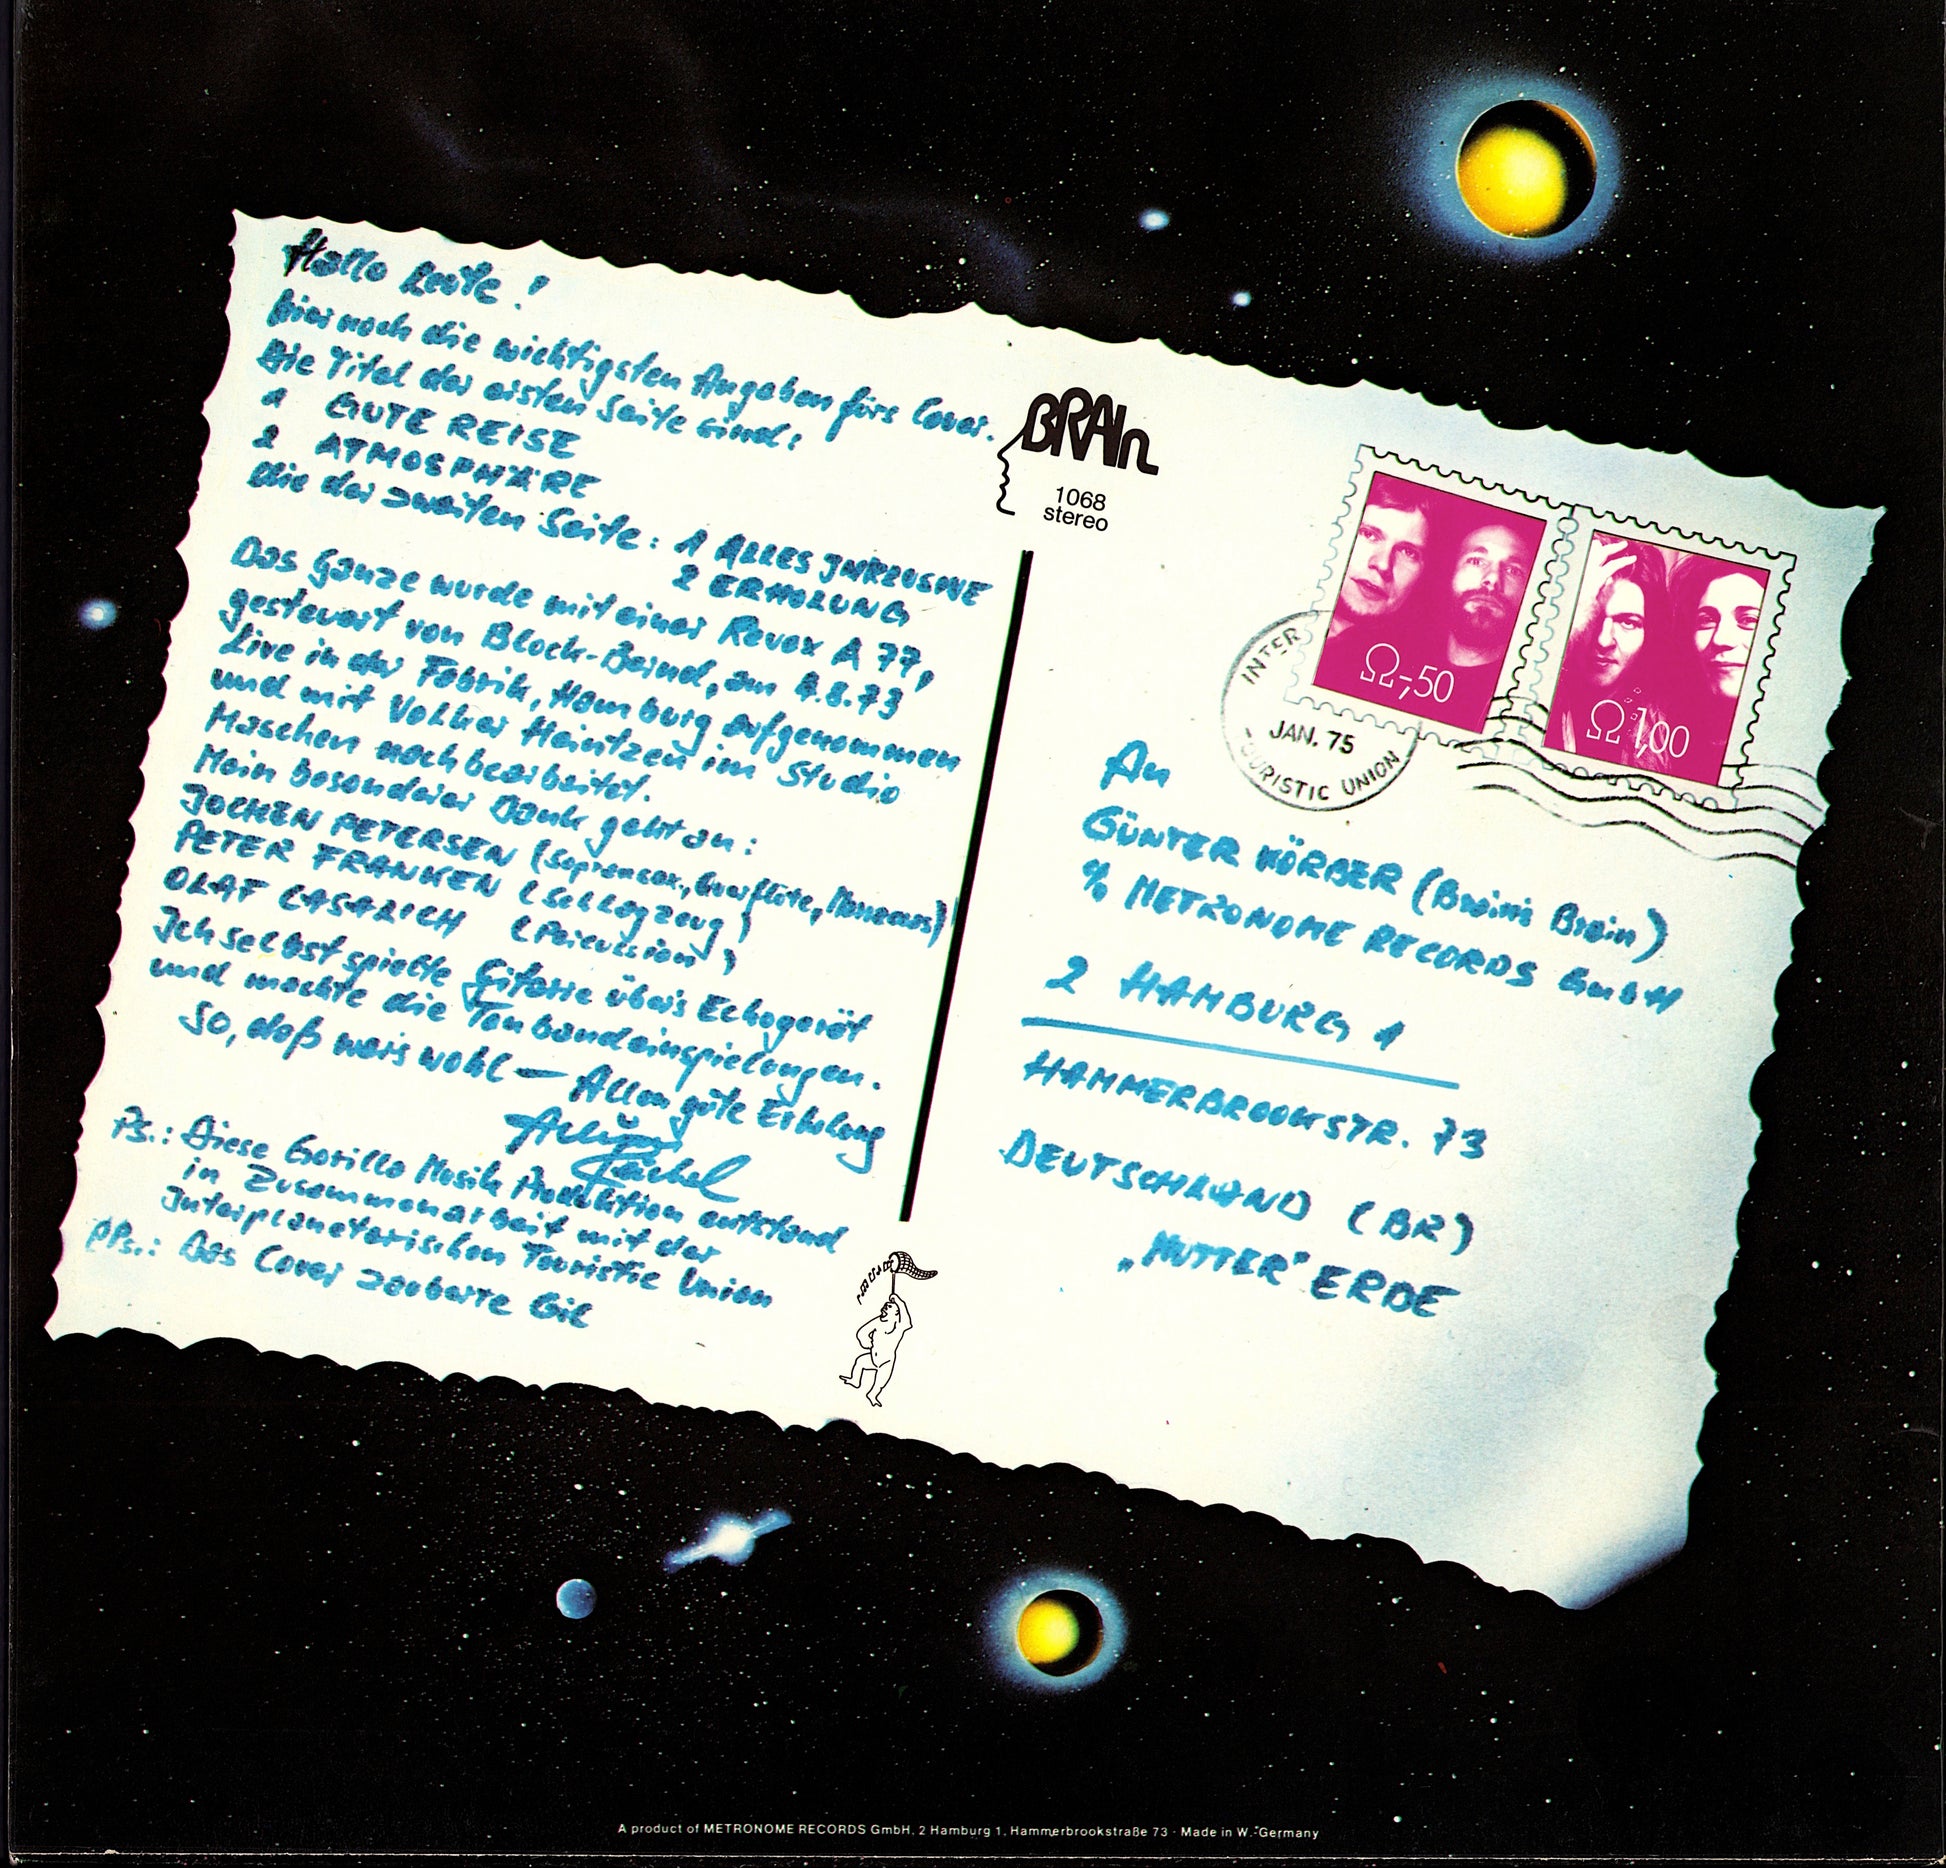 Hallo Leute!
hier noch die wichtigsten Angaben fürs Cover.
Die Titel der ersten Seite sind:
1 GUTE REISE
2 ATMOSPHÄRE
Die der zweiten Seite: 1 ALLES INKLUSIVE
2 ERHOLUNG
Das Ganze wurde mit einer Revox A 77,
gesteuert von Block-Bernd, am 4.8.73
Live in der Fabrik, Hamburg aufgenommen
und mit Volker Heintzen im Studio
Maschen nachbearbeitet.
Mein besonderer Dank geht an:
JOCHEN PETERSEN (Sopransax, Querflöte,
PETER FRANKEN (Schlagzeug)
OLAF CASALICH (Percussion)
Ich selbst spielte Gitarre übers Echogerät
und machte die Tonbandeinspielungen.
So, daß wars wohl — Allen gute Erholung
Achim
Reichel
Ps.: Diese Gorilla Musik Produktion entstand
in Zusammenarbeit mit der
Interplanetarischen Touristic Union
PPs.: Das Cover zauberte Gil
BRAIN
1068
stereo
Ω-,50
Ω 1,00
INTER
JAN. 75
-TOURISTIC UNION
An
GÜNTER KÖRBER (Brain's Brain)
% METRONOME RECORDS GmbH
2 HAMBURG 1
HAMMERBROOKSTR. 73
DEUTSCHLAND (BR)
„MUTTER" ERDE
A product of METRONOME RECORDS GmbH, 2 Hamburg 1, Hammerbrookstraße 73 · Made in W.-Germany